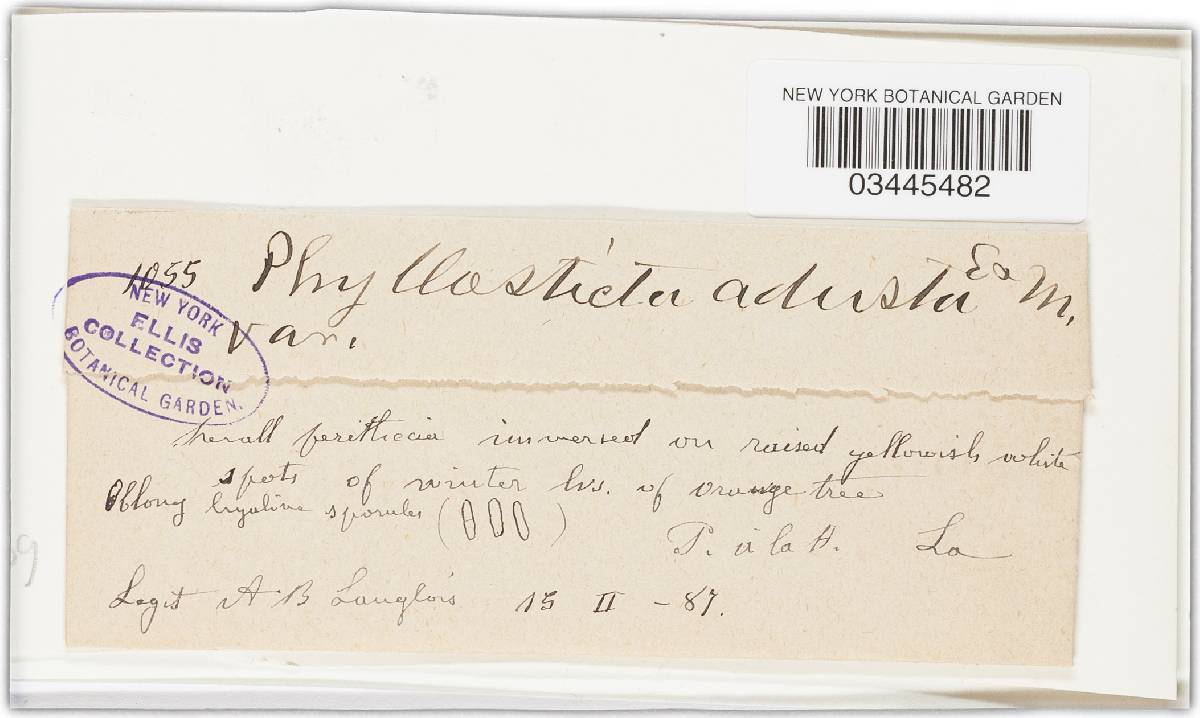 NEW YORK BOTANICAL GARDEN
03445482
1055 Phyllosticta adusta E & M.
var.
NEW YORK
ELLIS
COLLECTION
BOTANICAL GARDEN.
small perithecia immersed on raised yellowish white
spots of winter lvs. of orange tree
Oblong hyaline sporules ( )
P. à la H. La
Legit A B Langlois 15 II - 87.